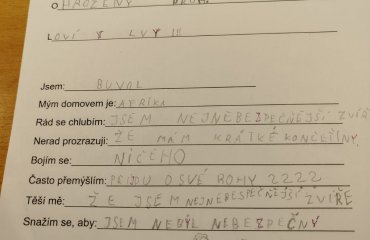 O HROŽENÝ DRUH.
LOVÍ X LVY !!!
Jsem: BUVOL
Mým domovem je: AFRIKA
Rád se chlubím: JSEM NEJNEBEZPEČNĚJŠÍ ZVÍŘ
Nerad prozrazuji: ŽE MÁM KRÁTKÉ KONČETINY.
Bojím se: NIČEHO
Často přemýšlím: PŘIJDU O SVÉ ROHY ????
Těší mě: ŽE JSEM NEJNEBESPEČNĚJŠÍ ZVÍŘE
Snažím se, aby: JSEM NEBYL NEBEZPEČNÝ